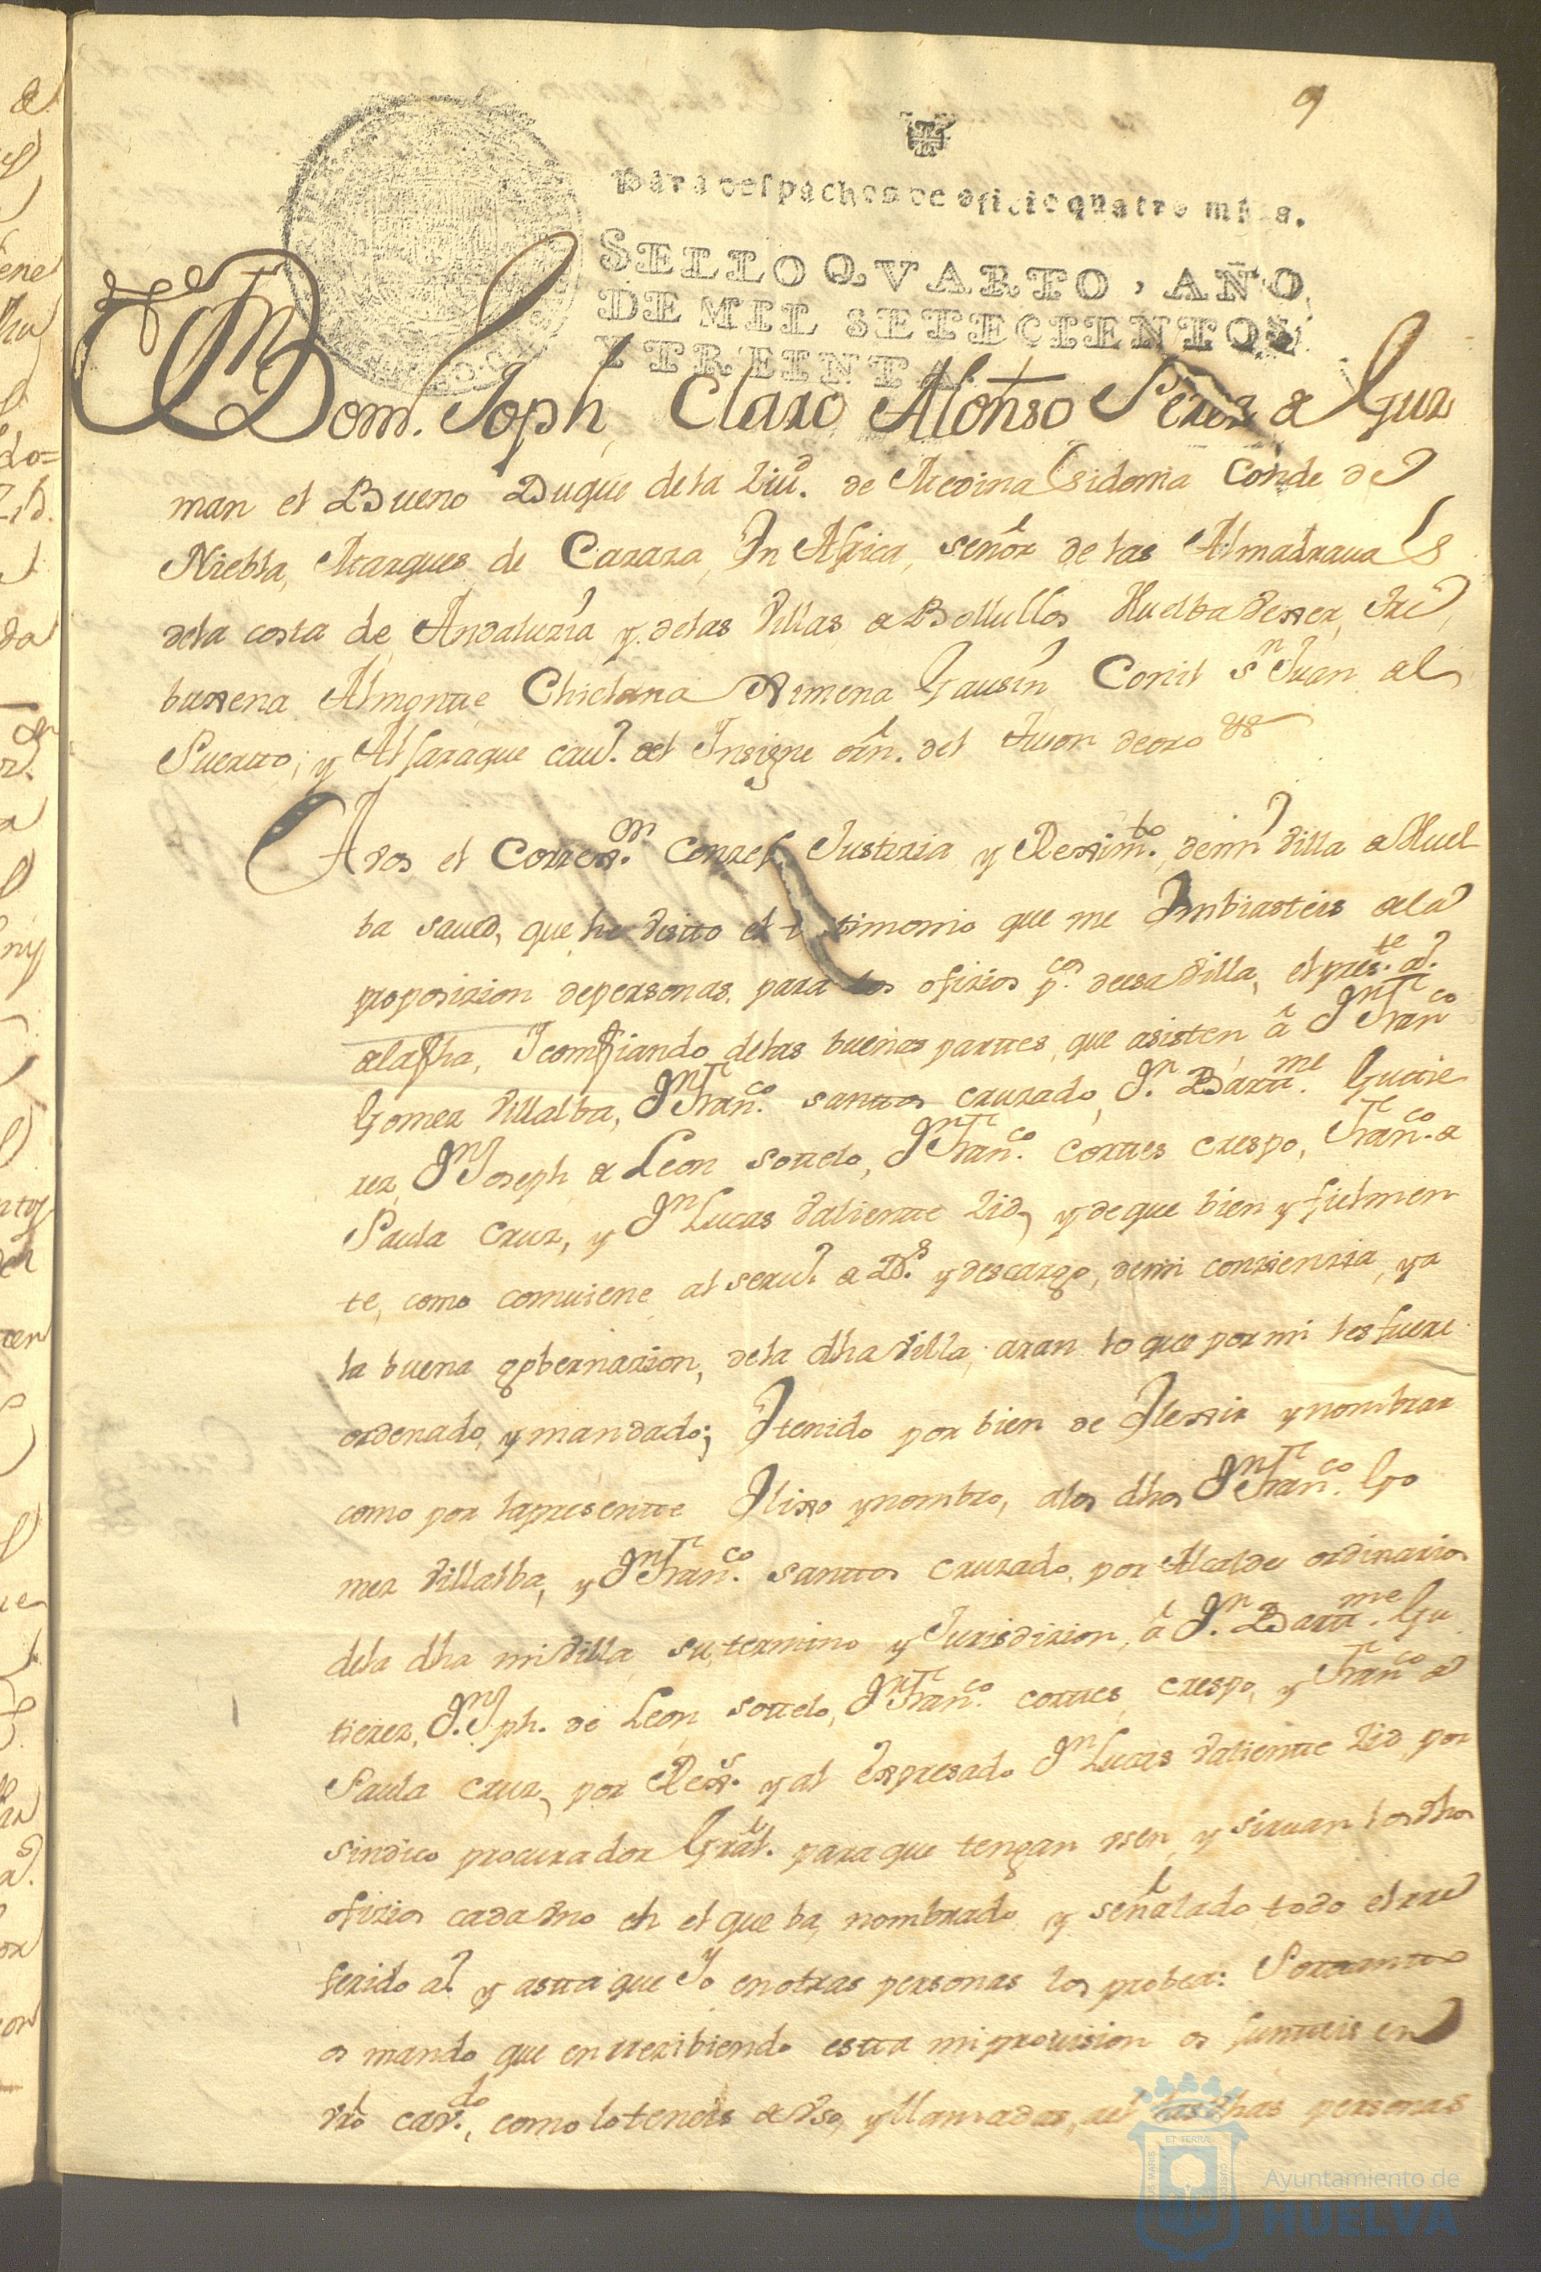 9
Para despachos de oficio quatro mrs.
SELLO QVARTO, AÑO
DE MIL SETECIENTOS
Y TREINTA.
Dom. Joph Claro Alonso Perez de Guz
man el Bueno Duque de la Ziud. de Medina Sidonia Conde de
Niebla, Marques de Cazaza, En Africa, señor de las Almadravas
de la costa de Andaluzia y de las Villas de Bollullos Huelba Vexer, Tre
buxena Almonte Chiclana Ximena Gausin Conil sn. Juan del
Puerto, y Alfaraque cauo. del Insigne orn. del tuson de oro &
A vos el Correxor. Conzejo Justizia y Reximto. de mi villa de Huel
ba saued, que he visto el testimonio que me Embiasteis de la
proposizion de personas, para los ofizios pcos. de esa villa, el preste. a.º
de la fha, Y confiando de las buenas partes que asisten â Dn. Franco.
Gomez Villalba, Dn. Franco. santtos cruzado, Dn. Bartme. Gutie
rez, Dn. Joseph de Leon sottelo, Dn. Franco. Corttes crespo, Franco. de
Paula Cruz, y Dn. Lucas Valiente Zid, y de que bien y fielmen
te, como comuiene al seruo. de Ds. y descargo, de mi conzienzia, y a
la buena gobernazion, de la dha villa, aran lo que por mi les fuere
ordenado, y mandado; E tenido por bien de Elexir y nombrar
como por la presente Elixo y nombro, a los dhos Dn. Franco. Go
mez Villalba, y Dn. Franco. santtos cruzado, por Alcaldes ordinarios
de la dha mi villa su termino y Jurisdizion, â Dn. Bartme. Gu
tierez, Dn. Jph. de Leon sottelo, Dn. Franco. corttes crespo, y Franco. de
Paula cruz, por Rexs. y al Expresado Dn. Lucas Valiente Zid por
sindico procurador Gral. para que tengan vsen y siruan los dhos
ofizios cada vno en el que ba nombrado y señalado todo el rre
ferido a.º y astta que Yo en otras personas los probea: Por tantto
os mando que en rrezibiendo estta mi prouision os junteis en
vro. cavdo., como lo teneis de vso, y llamadas, a el las dhas personas
ET TERRAE
Ayuntamiento de
HUELVA